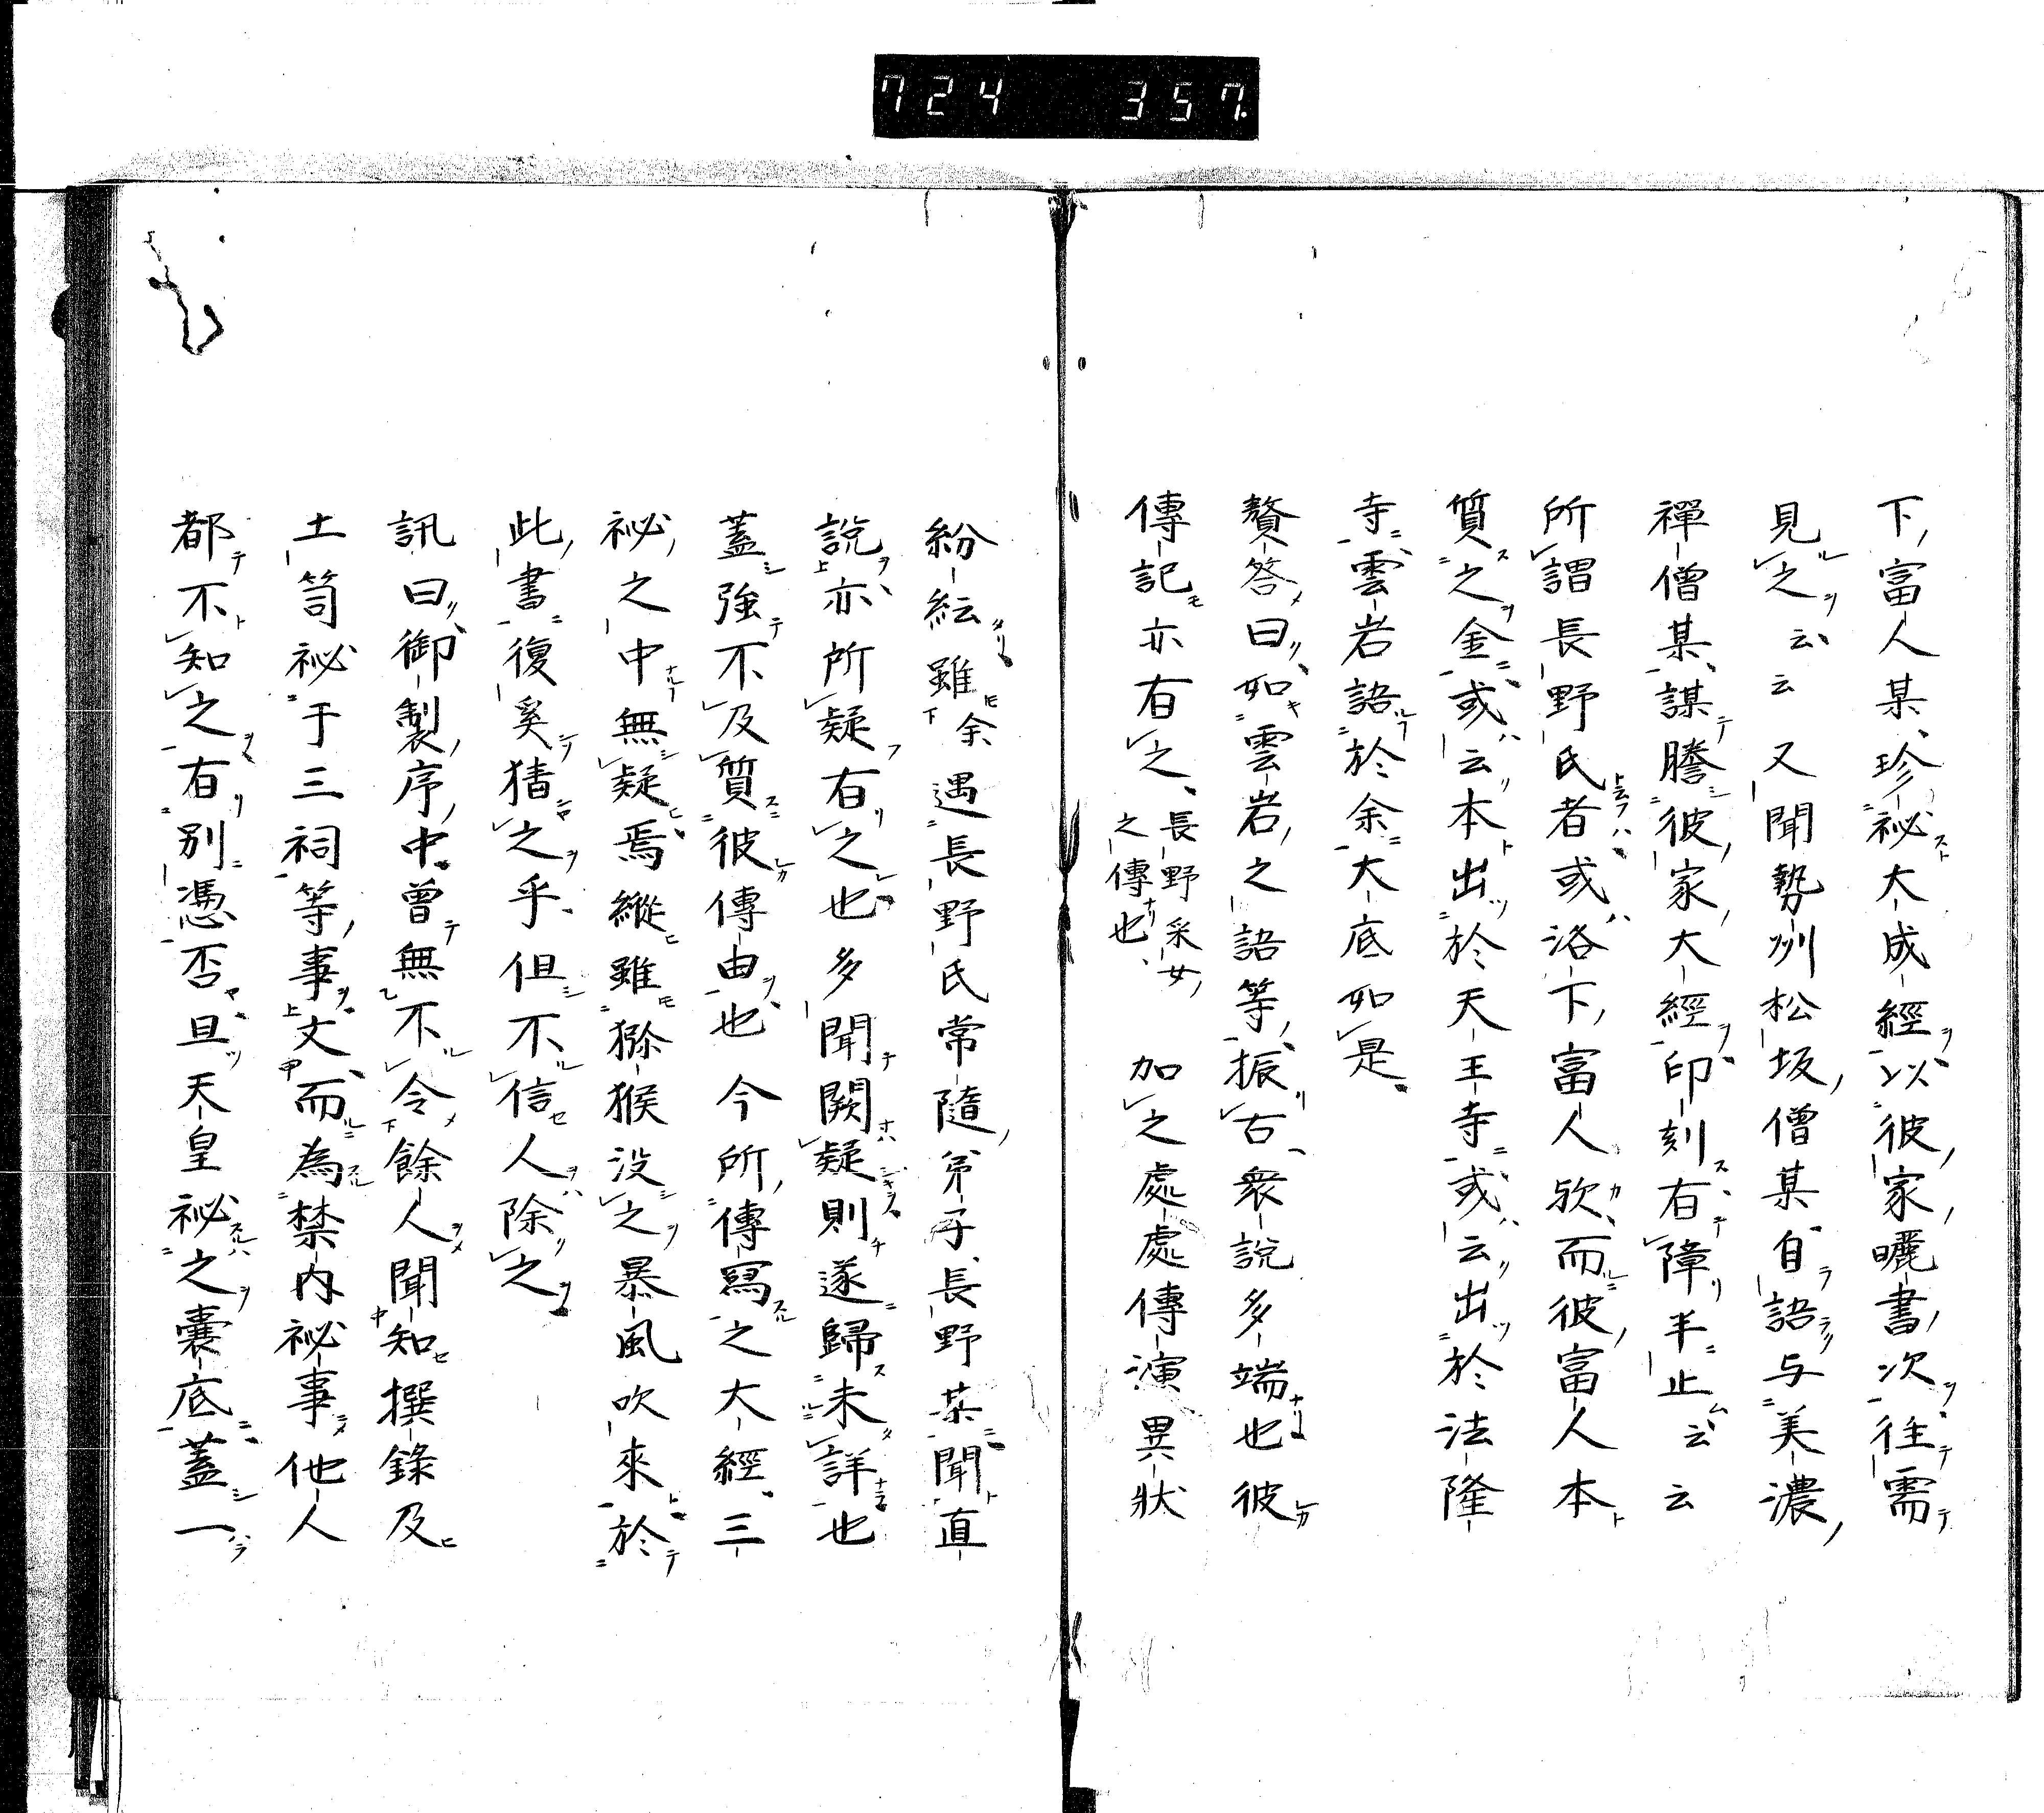 724 357.
下富人某珍祕大成經以彼家曬書次往需
見之云云又聞勢州松坂僧某自語与美濃
禪僧某謀謄彼家大經印刻有障半止云云
所謂長野氏者或洛下富人欤而彼富人本
質之金或云本出於天王寺或云出於法隆
寺雲岩語於余大底如是
贅答曰如雲岩之語等振古衆說多端也彼
傳記亦有之長野采女之傳也加之處處傳演異狀
紛紜雖余遇長野氏常隨弟子長野某聞直
說亦所疑有之也多聞闕疑則遂歸未詳也
蓋強不及質彼傳由也今所傳寫之大經三
祕之中無疑焉縱雖猕猴没之暴風吹來於
此書復奚猜之乎但不信人除之
訊曰御製序中曾無不令餘人聞知撰錄及
土笥祕于三祠等事文而為禁内祕事他人
都不知之有別憑否且天皇祕之囊底蓋一